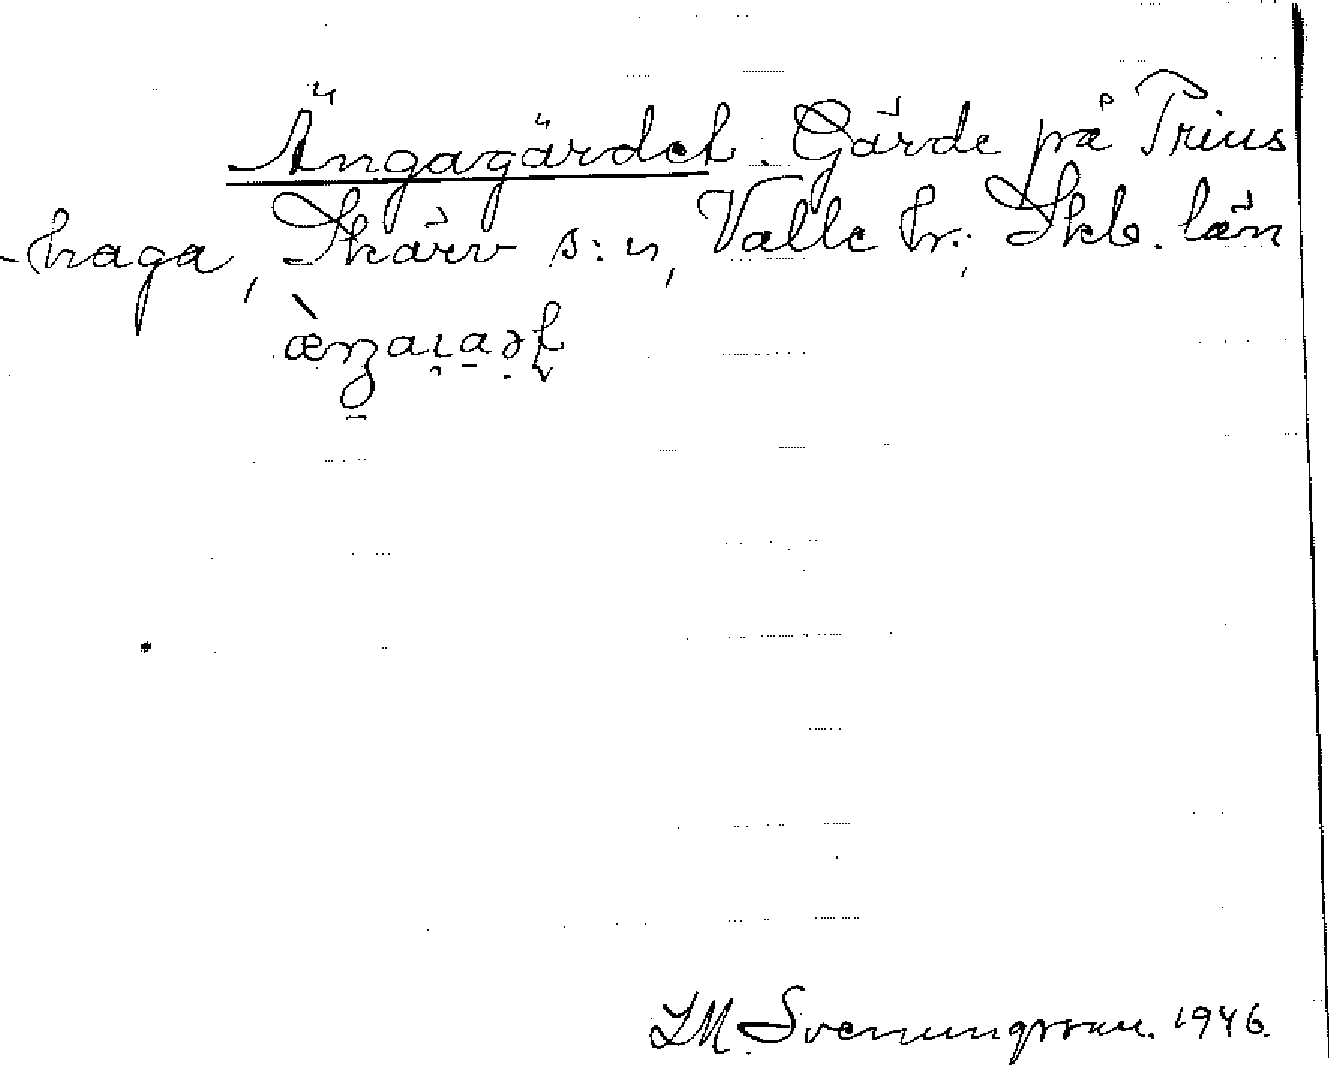 Ängagärdet. Gärde på Trins
-haga, Skärv s:n, Valle hr., Skb. län
J.M. Svenungsson. 1946.